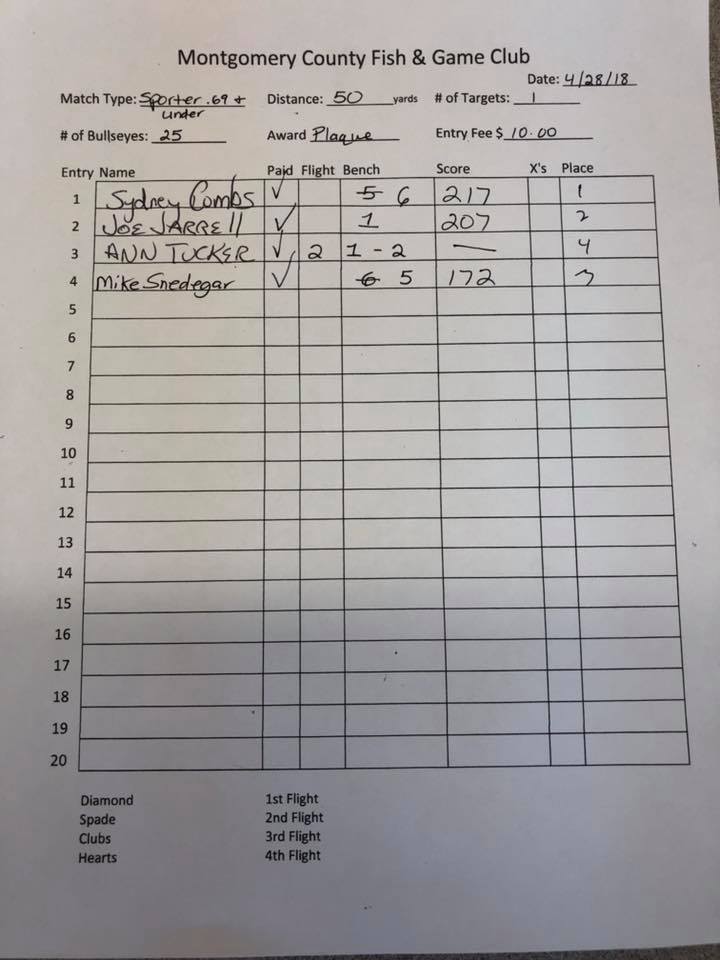 Montgomery County Fish & Game Club
Date: 4/28/18
Match Type: Sporter .69 + under Distance: 50 yards # of Targets: 1
# of Bullseyes: 25 Award Plaque Entry Fee $ 10.00
Entry Name Paid Flight Bench Score X's Place
1 Sydney Combs ✓ 5 6 217 1
2 JOE JARRELL ✓ 1 207 2
3 ANN TUCKER ✓ 2 1-2 — 4
4 Mike Snedegar ✓ 6 5 172 3
5
6
7
8
9
10
11
12
13
14
15
16
17
18
19
20
Diamond 1st Flight
Spade 2nd Flight
Clubs 3rd Flight
Hearts 4th Flight